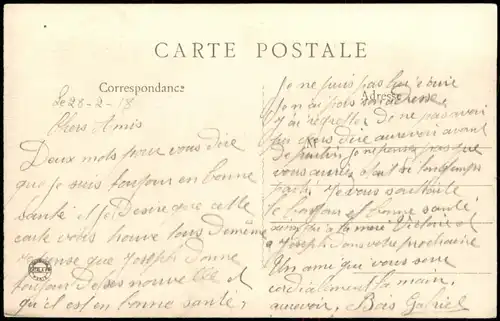 CARTE POSTALE
Correspondance
Adresse
Le 28-2-18
Chers Amis
Deux mots pour vous dire
que je suis toujour en bonne
santé et je Desire que cette
carte vous trouve tous De même
Je pense que Joseph Donne
toujour Des es nouvelle et
qu'il est en bonne santé,
Je ne puis pas lui écrire
Je n'ai pas son adresse,
J'ai regretter De ne pas avoir
pu vous dire aurevoir avant
De partir, Je ne pas que
vous aurié était si longtemps
parti Je vous souhaite
le bonjour et bonne santé
ainsi qu'a la mere Victoire et
a Joseph Dans votre prochaine
Un ami que vous serre
cordialement la main,
aurevoir, Bois Gabriel